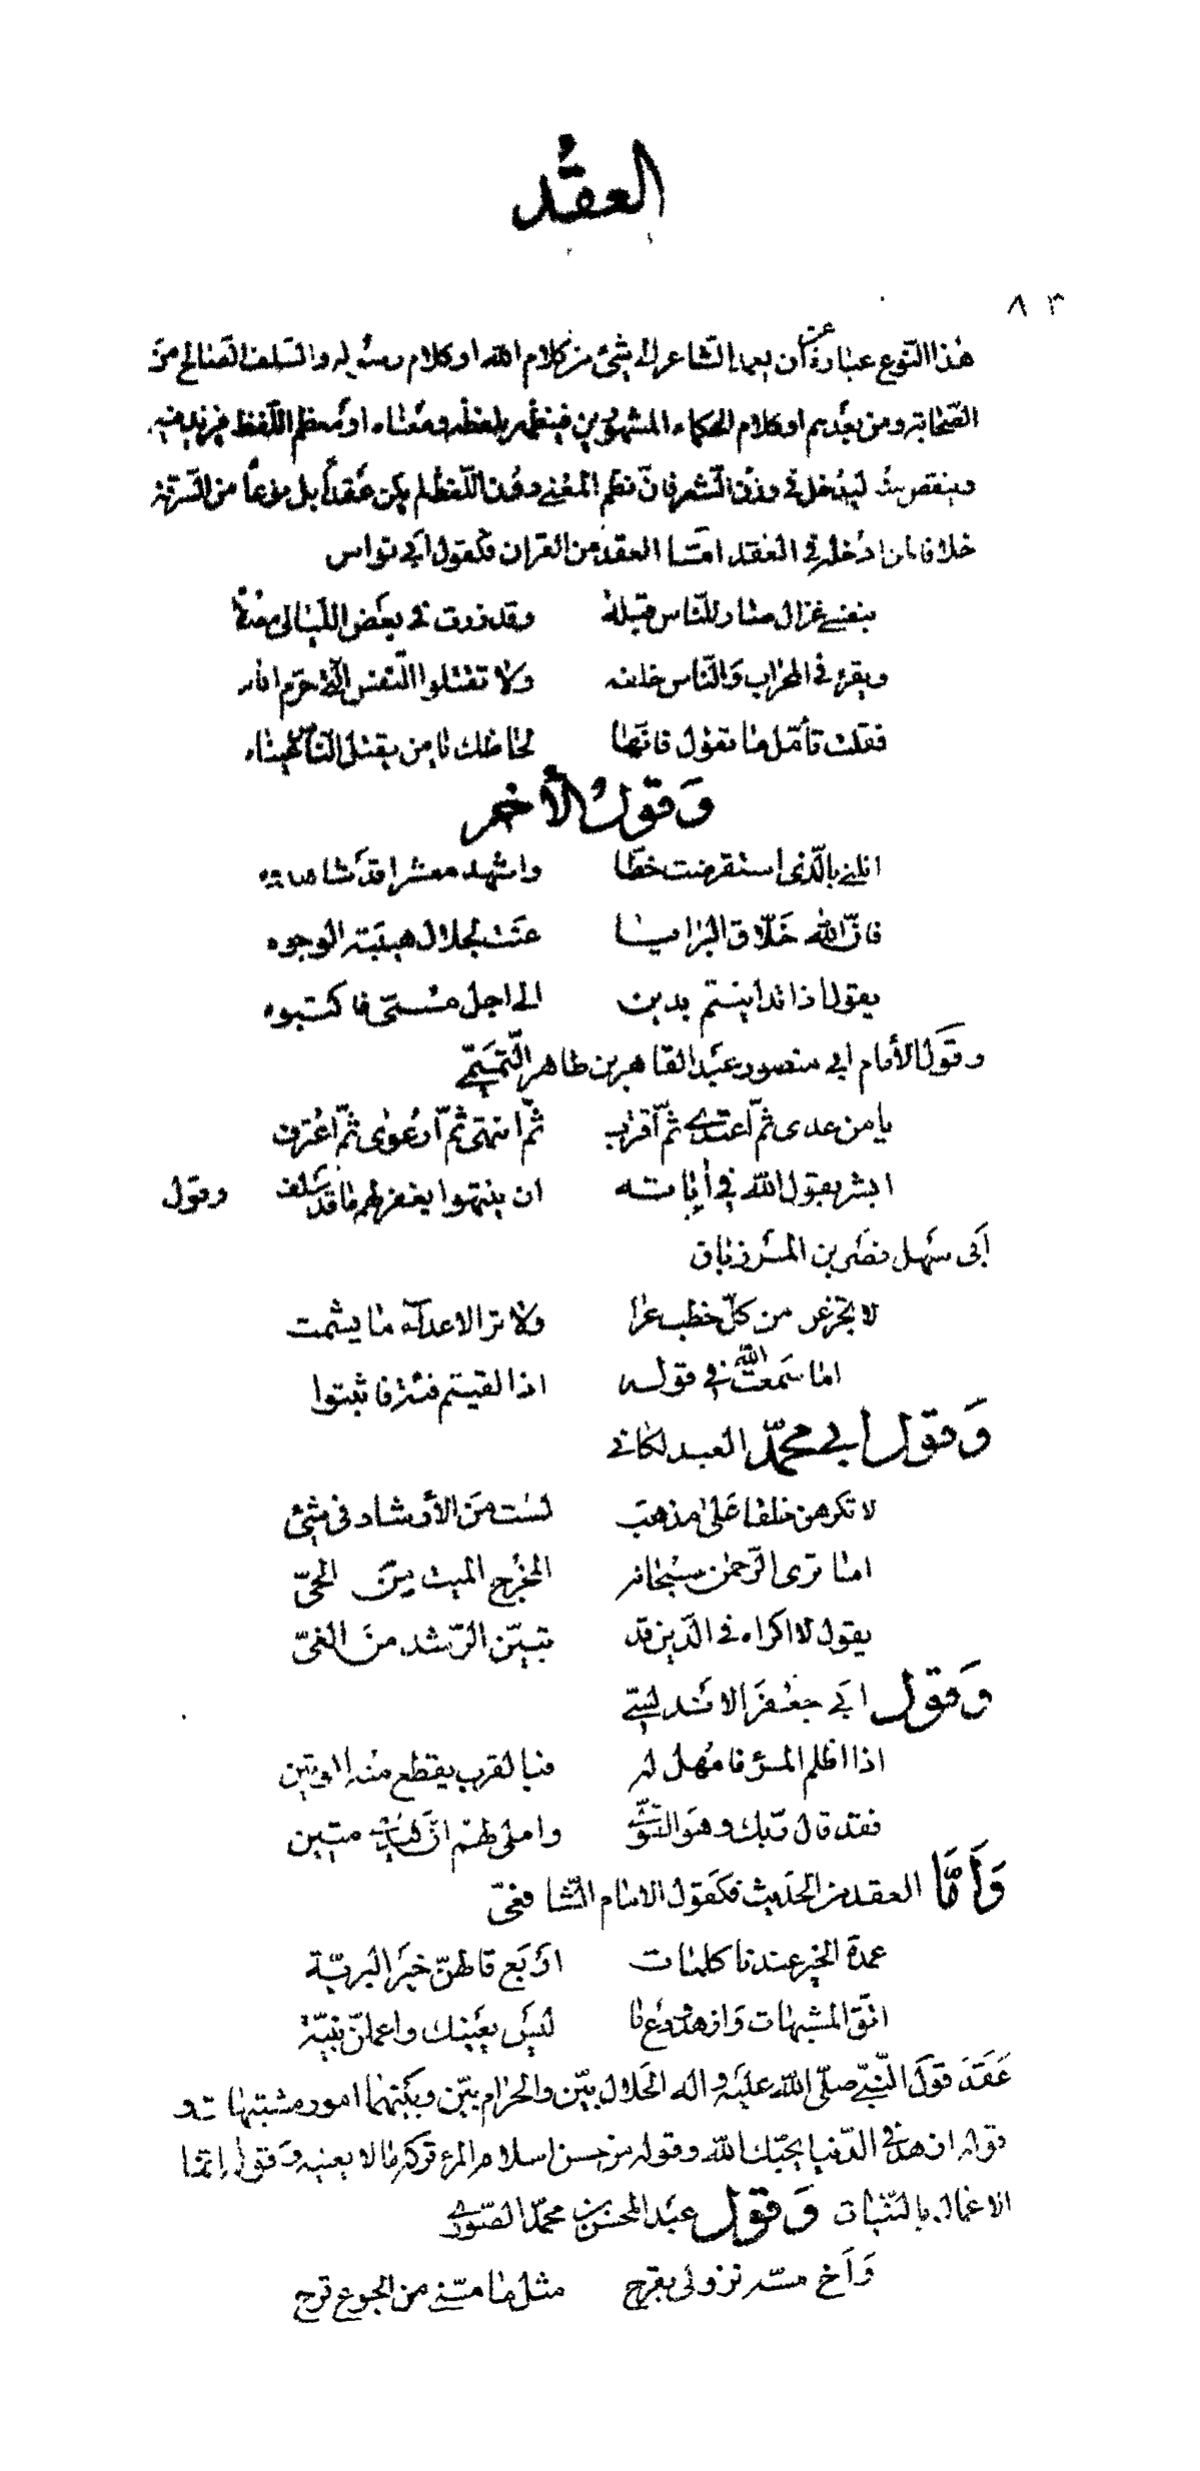 العقد
٨٣
هذا النوع عبارة عن أن يعمد الشاعر الى شئ من كلام الله او كلام رسوله والسلف الصالح من
الصحابة ومن بعدهم او كلام الحكماء المشهورين فينظمه بلفظه ومعناه او معظم اللفظ فيزيد فيه
وينقص منه ليدخل فى وزن الشعر فان نظم المعنى دون اللفظ لم يكن عقداً بل نوعاً من السرقة
خلافا لمن ادخله فى العقد امّا العقد من القران فكقول ابى نواس
بنفسى غزال صار للناس قبلة وقد زرت فى بعض الليالى مصلاه
ويقرء فى المحراب والناس خلفه ولا تقتلوا النفس التى حرم الله
فقلت تأمّل ما تقول فانها لحاظك يا من يقتل الناس عيناه
وَقولُ الأخر
انلنى بالّذى استقرضت خطّا واشهد معشرا قد شاهدوه
فانّ الله خلّاق البرايا عنت لجلال هيبته الوجوه
يقول اذا تداينتم بدين الى اجل مسمّى فاكتبوه
وقول الأمام ابى منصور عبد القاهر بن طاهر التميمّى
يا من عدى ثمّ اعتدى ثمّ اقترف ثمّ انتهى ثمّ ارعوى ثمّ اعترف
ابشر بقول الله فى أياته ان ينتهوا يغفر لهم ما قد سلف وقول
أبى سهل نصر بن المرزبان
لا تجزعن من كلّ خطب عرا ولا تر الاعدآء ما يشمت
اما سمعت الله فى قوله اذا لقيتم فئة فاثبتوا
وَقول ابى محمّد العبدلكانى
لا تكرهن خلقا على مذهب لست من الأرشاد فى شئ
اما ترى الرّحمن سبحانه المخرج الميت من الحىّ
يقول لا اكراه فى الدّين قد تبيّن الرّشد من الغىّ
وَقول ابى جعفر الاندلسىّ
اذا ظلم المرء فامهل له فبالقرب يقطع منه الوتين
فقد قال ربّك وهو القوىّ واملى لهم انّ كيدى متين
وَأمّا العقد من الحديث فكقول الامام الشافعىّ
عمدة الخير عندنا كلمات اربع قالهنّ خير البريّة
اتّق المشبهات وازهد ودع ما ليس يعنيك واعملنّ بنيّة
عَقَد قول النبىّ صلّى الله عليه واله الحلال بيّن والحرام بيّن وبينهما امور مشتبهات و
قوله ازهد فى الدّنيا يحبّك الله وقوله من حسن اسلام المرء تركه ما لا يعنيه وقوله انّما
الاعمال بالنّيات وَقول عبد المحسن بن محمّد الصّورى
وَأخ مسّه نزولى بقرح مثل ما مسّنى من الجوع قرح